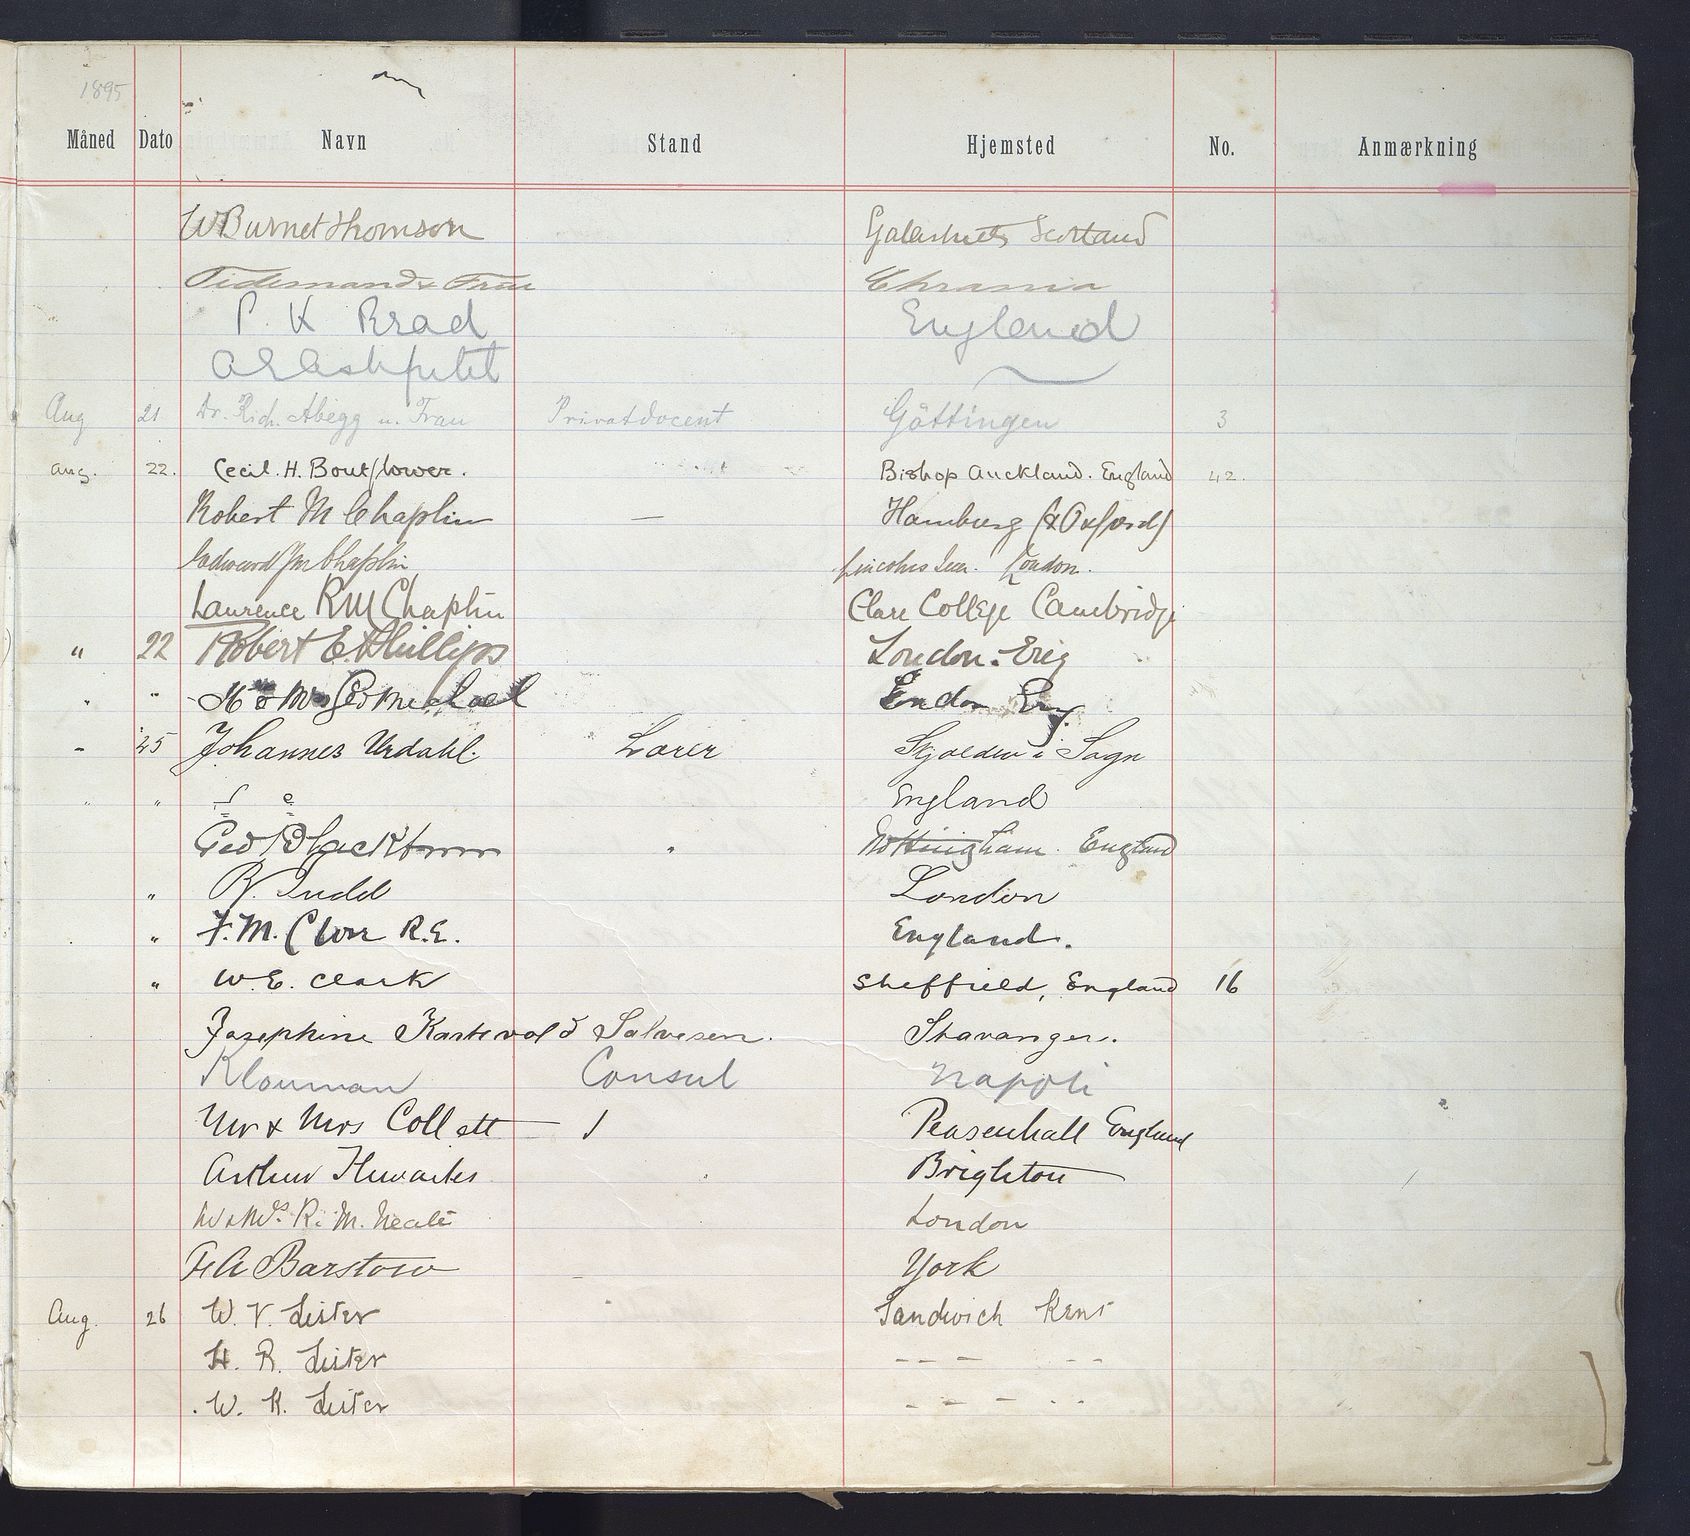 1895
Måned Dato Navn Stand Hjemsted No. Anmærkning
W Burnet Thomson Galashiels Scotland
Tidemand & Frue Chrania
P. K Read England
Aug 21 Dr. Rich. Abegg u. Frau Privatdocent Göttingen 3
Aug. 22. Cecil. H. Boutflower. Bishop Auckland. England 42.
Robert M Chaplin — Hamburg (& Oxford)
Edward M Chaplin Lincolns Inn. London.
Laurence R M Chaplin Clare College Cambridge
" 22 Robert E. Phillips London. Eng
" " Mr & Mrs Geo Michael London Eng.
- 25 Johannes Urdahl. Lærer Skjolden i Sogn
" " England
Geo Blackburn " Nottingham. England
" R. Judd London
" F. M. Close R.E. England.
" W. E. Clark Sheffield, England 16
Josephine Kastevold Salvesen. Stavanger.
Klouman Consul Napoli
Mr & Mrs Collett Peasenhall England
Arthur Thwaites Brighton
Mr & Mrs R. M. Neale London
F A Barstow York
Aug. 26 W. V. Lister Sandwich Kent
H. R. Lister - - - - -
W. K. Lister - - - - -